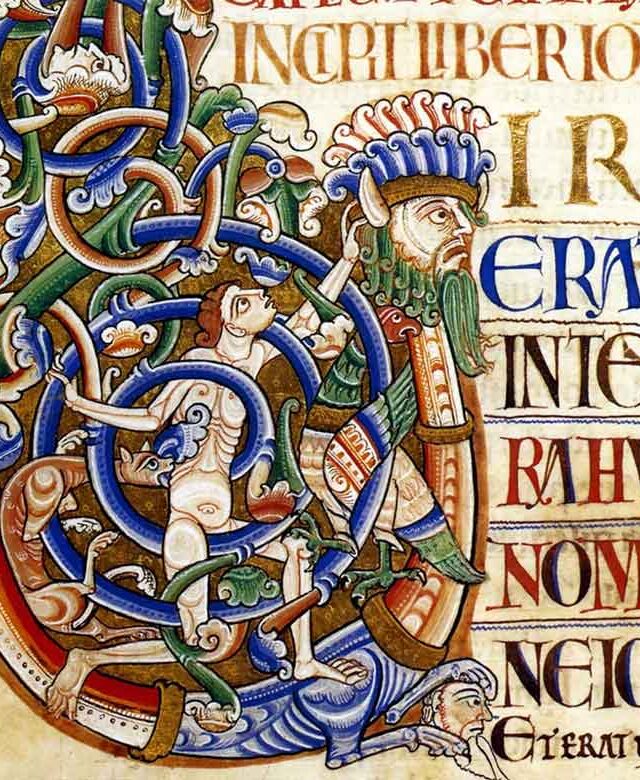 INCIPIT LIBER IO
IR
ERA
INTE
RAHV
NOM
NEIO
ET ERAT